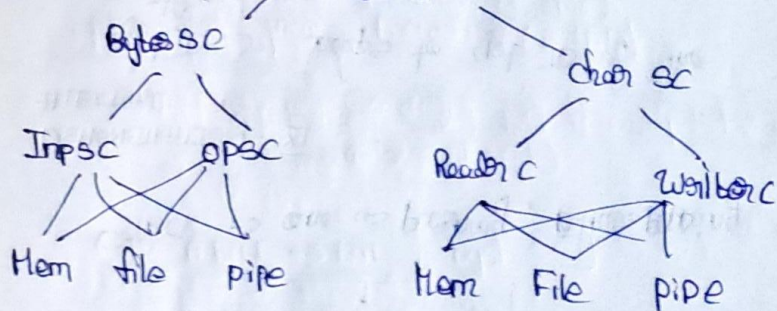 Bytes SC
Char SC
InpSC OPSC
Reader C Writer C
Mem file pipe
Mem File pipe